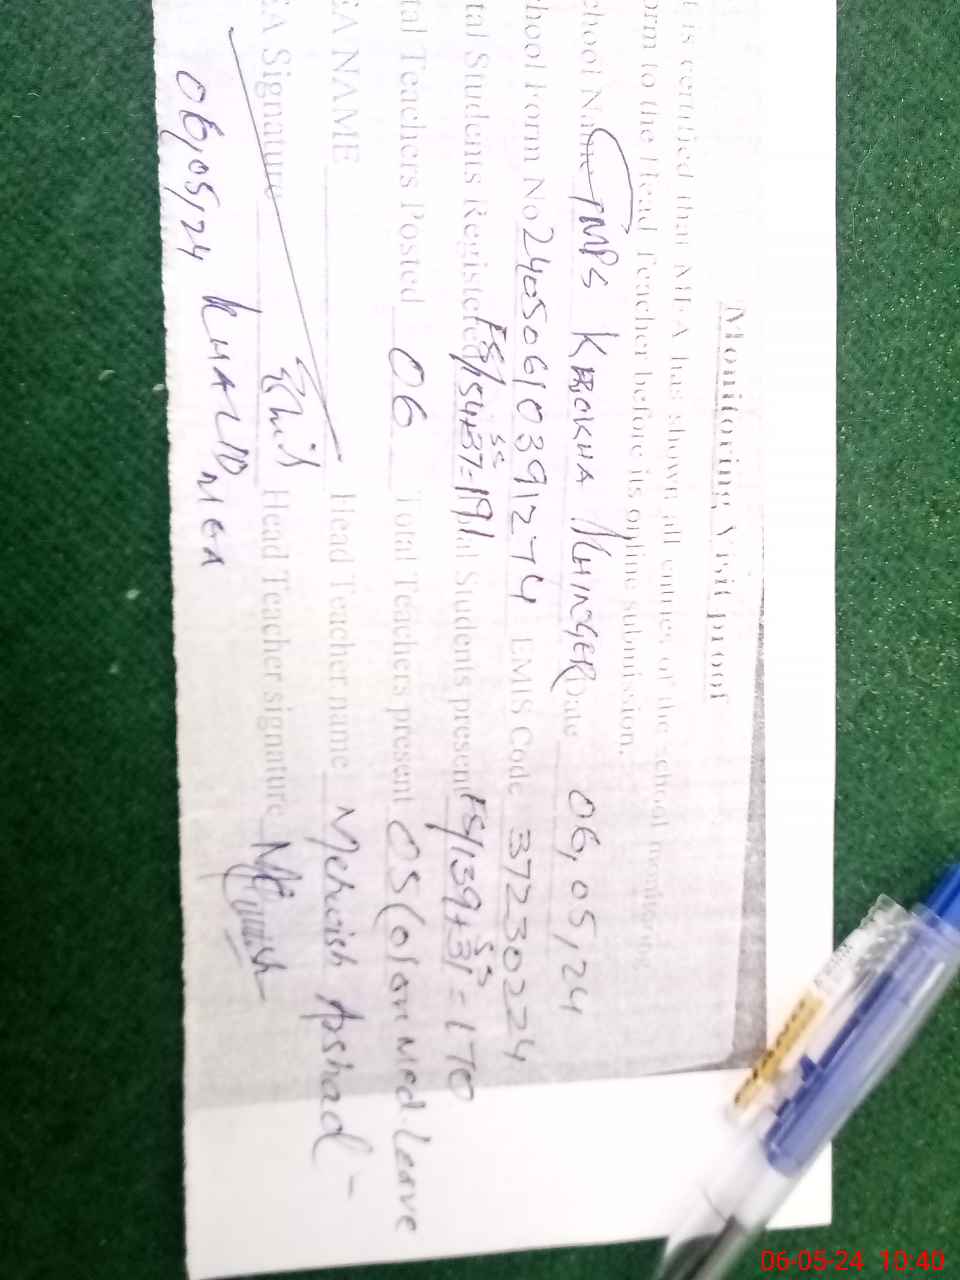 Monitoring Visit proof
t is certified that MEA has shown all entries of the school monitoring
orm to the Head Teacher before its online submission.
chool Name GMPS KHOKHA KHINGER Date 06,05,24
chool Form No 24050610391274 EMIS Code 37230224
tal Students Registered FS/154+SS 37=191 al Students present FS/139+SS 31=170
tal Teachers Posted 06 Total Teachers present 05 (01 on Med. Leave
EA NAME Head Teacher name Mehwish Arshad -
EA Signature Head Teacher signature Mehwish
06,05,24 KHALID MEA
06-05-24 10:40